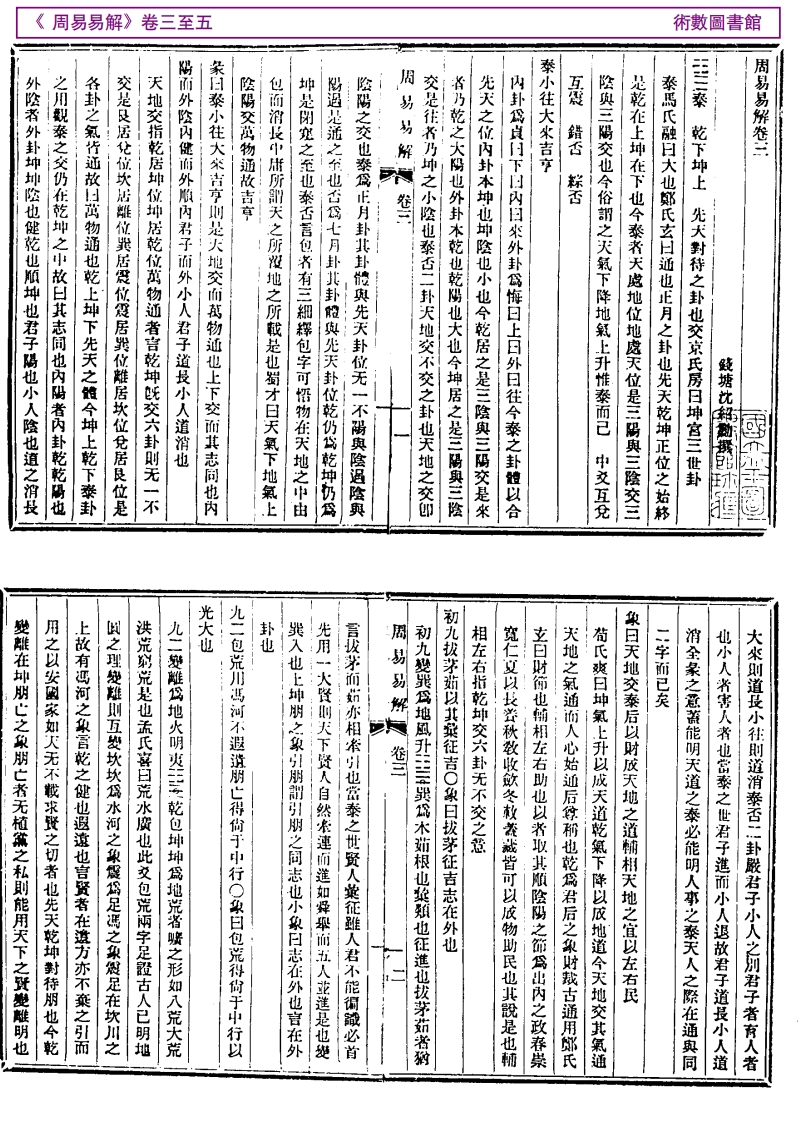 《 周易易解》卷三至五
術數圖書館
周易易解卷三
錢塘沈紹勳撰
三三泰 乾下坤上 先天對待之卦也交京氏房曰坤宮三世卦
泰馬氏融曰大也鄭氏玄曰通也正月之卦也先天乾坤正位之始終
是乾在上坤在下也今泰者天處地位地處天位是三陽與三陰交三
陰與三陽交也今俗謂之天氣下降地氣上升惟泰而已 中爻互兌
互震 錯否 綜否
泰小往大來吉亨
內卦爲貞曰下曰內曰來外卦爲悔曰上曰外曰往今泰之卦體以合
先天之位內卦本坤也坤陰也小也今乾居之是三陰與三陽交是來
者乃乾之大陽也外卦本乾也乾陽也大也今坤居之是三陽與三陰
交是往者乃坤之小陰也泰否二卦天地交不交之卦也天地之交卽
周易易解 卷三 一
陰陽之交也泰爲正月卦其卦體與先天卦位无一不陽與陰遇陰與
陽遇是通之至也否爲七月卦其卦體與先天卦位乾仍爲乾坤仍爲
坤是閉塞之至也泰否言包者有三細繹包字可悟物在天地之中由
包而消長中庸所謂天之所覆地之所載是也蜀才曰天氣下地氣上
陰陽交萬物通故吉亨
彖曰泰小往大來吉亨則是天地交而萬物通也上下交而其志同也內
陽而外陰內健而外順內君子而外小人君子道長小人道消也
天地交指乾居坤位坤居乾位萬物通者言乾坤旣交六卦則无一不
交是艮居兌位坎居離位巽居震位震居巽位離居坎位兌居艮位是
各卦之氣皆通故曰萬物通也乾上坤下先天之體今坤上乾下泰卦
之用觀泰之交仍在乾坤之中故曰其志同也內陽者內卦乾乾陽也
外陰者外卦坤坤陰也健乾也順坤也君子陽也小人陰也道之消長
大來則道長小往則道消泰否二卦嚴君子小人之別君子者育人者
也小人者害人者也當泰之世君子進而小人退故君子道長小人道
消全彖之意蓋能明天道之泰必能明人事之泰天人之際在通與同
二字而已矣
象曰天地交泰后以財成天地之道輔相天地之宜以左右民
荀氏爽曰坤氣上升以成天道乾氣下降以成地道今天地交其氣通
天地之氣通而人心始通后尊稱也乾爲君后之象財裁古通用鄭氏
玄曰財節也輔相左右助也以者取其順陰陽之節爲出內之政春崇
寬仁夏以長養秋敎收斂冬敕蓋藏皆可以成物助民也其說是也輔
相左右指乾坤交六卦无不交之意
初九拔茅茹以其彙征吉○象曰拔茅征吉志在外也
初九變巽爲地風升三三巽爲木茹根也彙類也征進也拔茅茹者猶
周易易解 卷三 二
言拔茅而茹亦相牽引也當泰之世賢人彙征雖人君不能徧識必首
先用一大賢則天下賢人自然牽連而進如舜舉而五人並進是也變
巽入也上坤朋之象引朋謂引朋之同志也小象曰志在外也言在外
卦也
九二包荒用馮河不遐遺朋亡得尙于中行○象曰包荒得尙于中行以
光大也
九二變離爲地火明夷三三乾包坤坤爲地荒者曠之形如八荒大荒
洪荒窮荒是也孟氏喜曰荒水廣也此爻包荒兩字足證古人已明地
圓之理變離則互變坎坎爲水河之象震爲足馮之象震足在坎川之
上故有馮河之象言乾之健也遐遠也言賢者在遠方亦不棄之引而
用之以安國家如天无不載求賢之切者也先天乾坤對待朋也今乾
變離在坤朋亡之象朋亡者无植黨之私則能用天下之賢變離明也